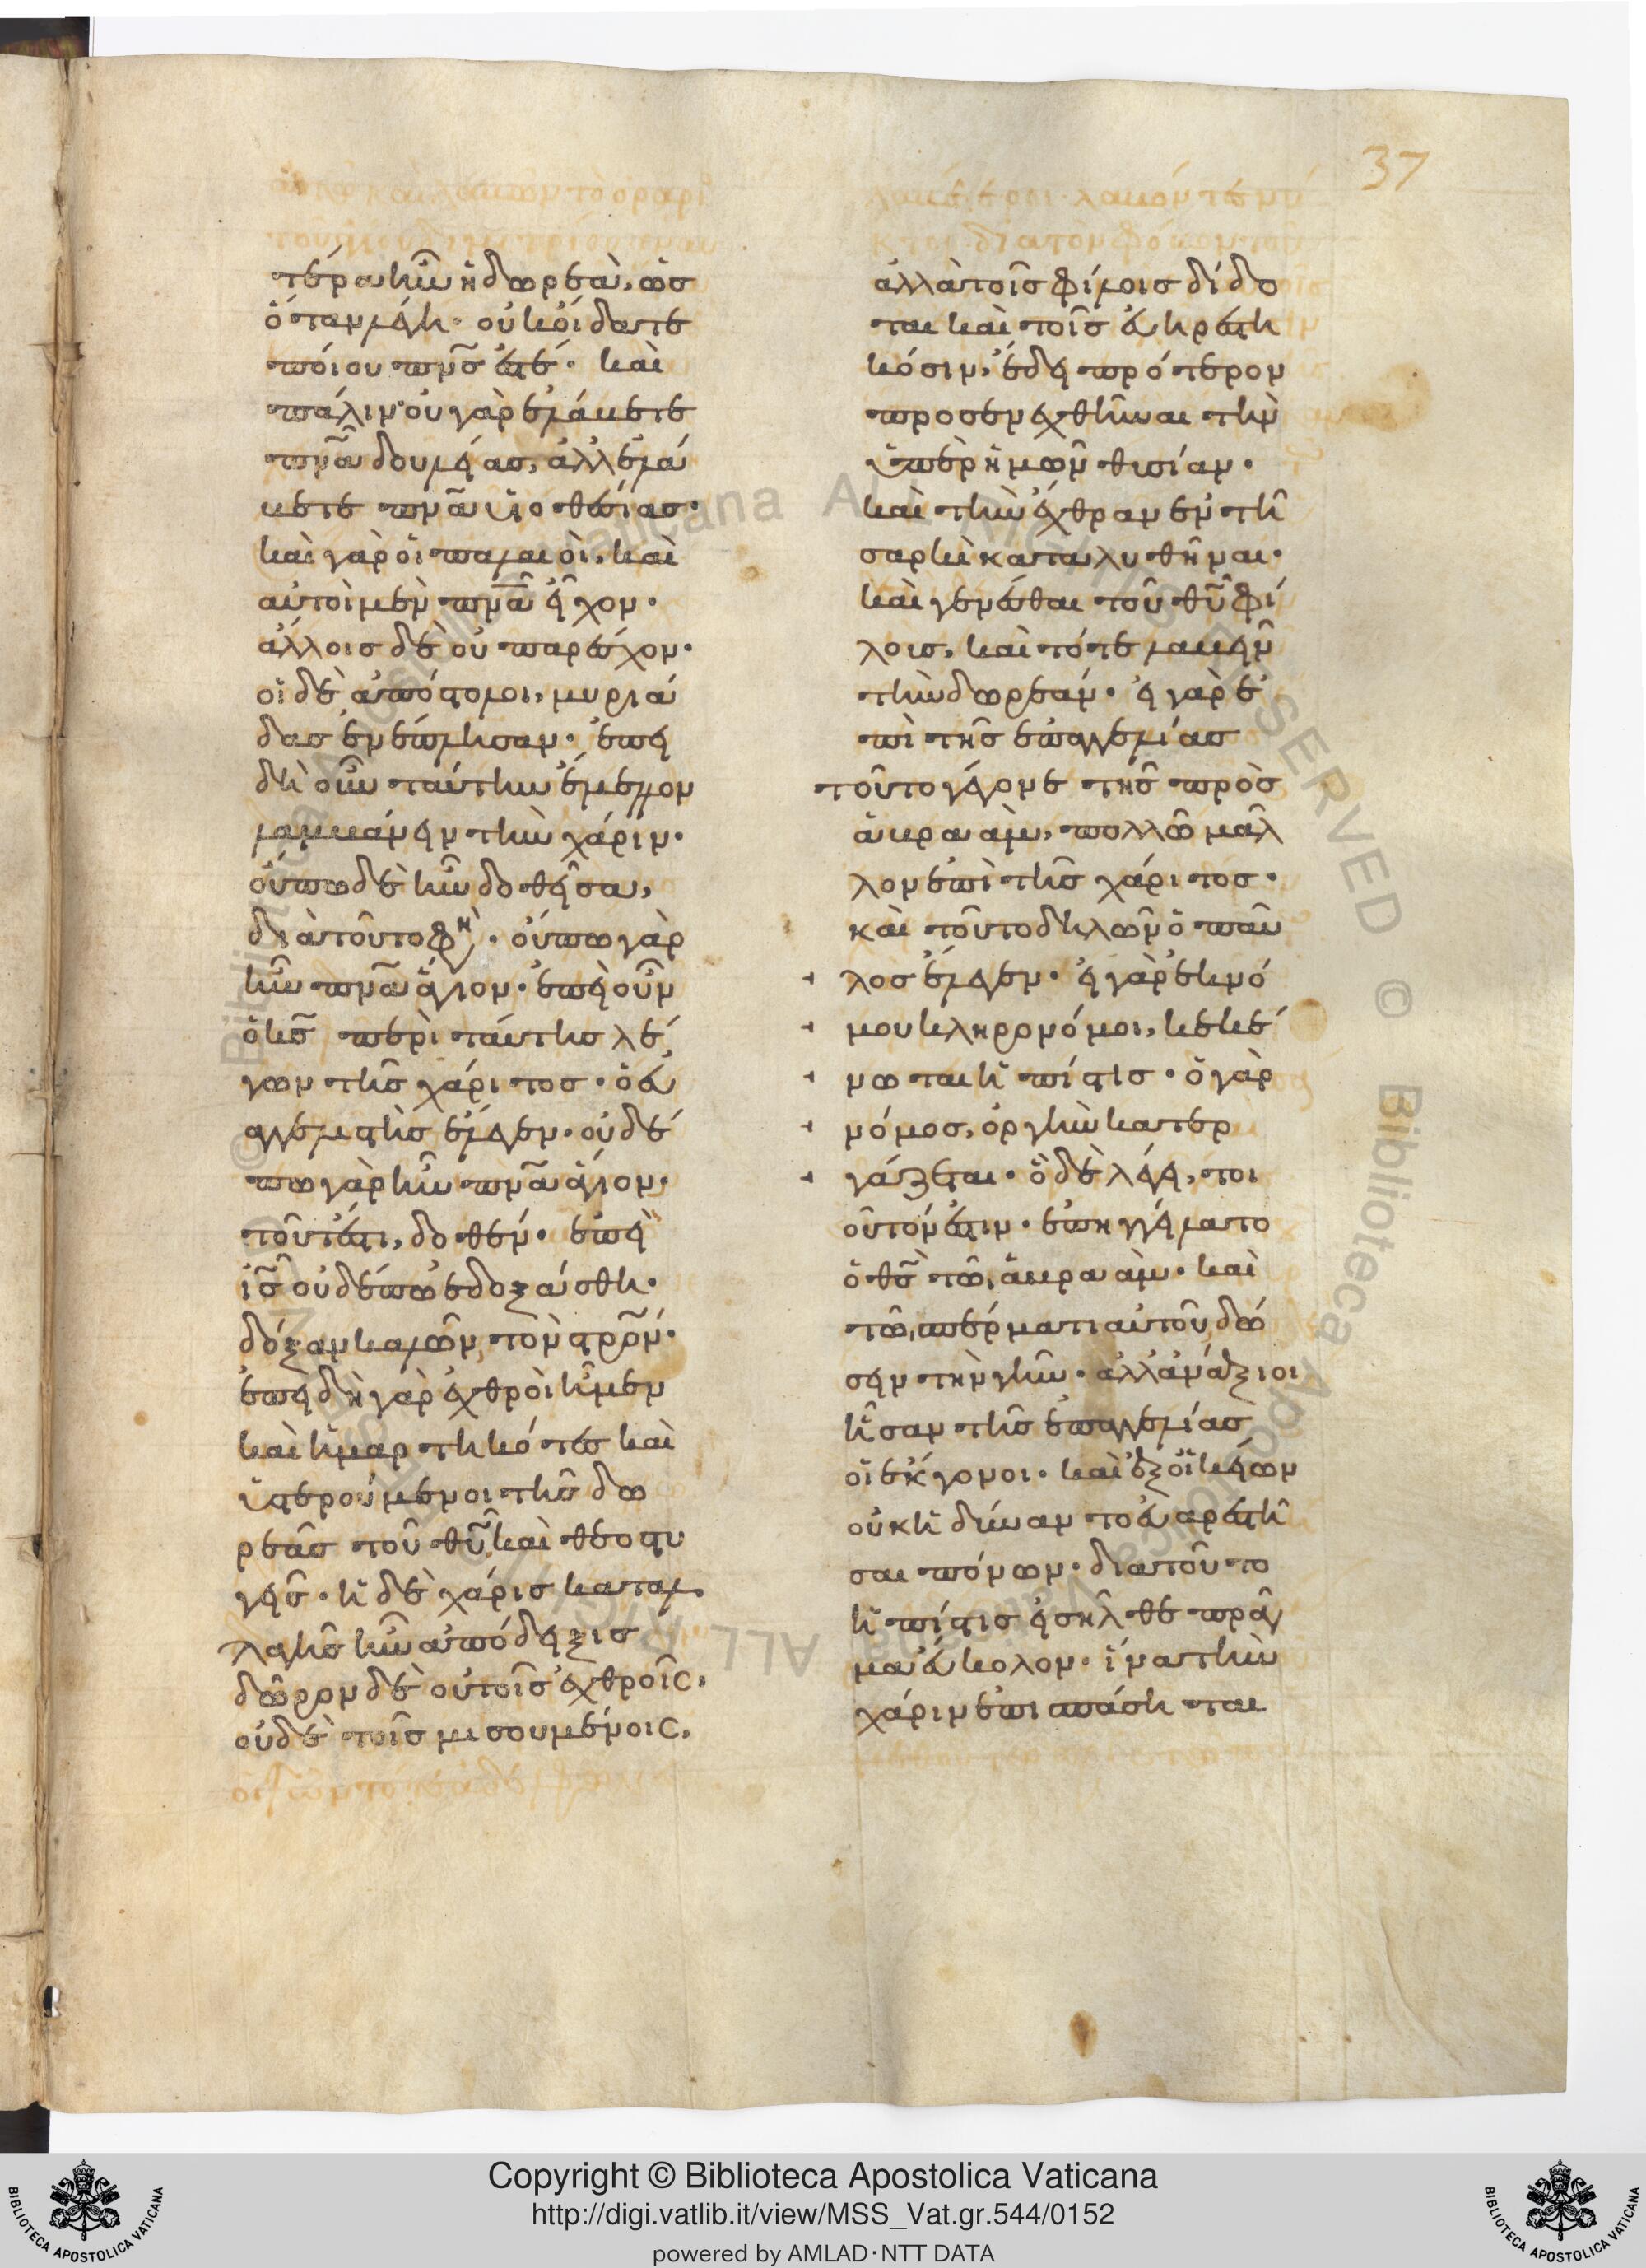 37
τέρα ἦν ἡ δωρεὰ, ὡς
ὅταν λέγη· οὐκ οἴδατε
ποίου πνς ἐστέ· καὶ
πάλιν· οὐ γὰρ ἐλάβετε
πνα δουλείας, ἀλλ ἐλά
βετε πνα υἱοθεσίας·
καὶ γὰρ οἱ παλαιοὶ, καὶ
αὐτοὶ μὲν πνα εἶχον·
ἄλλοις δὲ οὐ παρεῖχον·
οἱ δὲ ἀπόστολοι, μυριά
δας ἐνέπλησαν· ἐπεὶ
δὴ οὖν ταύτην ἔμελλον
λαμβάνειν τὴν χάριν·
οὔπω δὲ ἦν δοθεῖσα,
διὰ τοῦτο φη· οὔπω γὰρ
ἦν πνα ἅγιον· ἐπεὶ οὖν
ὁ κς περὶ ταύτης λέ
γων τῆς χάριτος· ὁ εὐ
αγγελιστὴς ἔλεγεν· οὐδέ
πω γὰρ ἦν πνα ἅγιον·
τουτέστι, δοθέν· ἐπεὶ
ις οὐδέπω ἐδοξάσθη·
δόξαν καλῶν, τὸν στρον·
ἐπειδὴ γὰρ ἐχθροὶ ἦμεν
καὶ ἡμαρτηκότες καὶ
ὑστερούμενοι τῆς δω
ρεᾶς τοῦ θυ καὶ θεοστυ
γεῖς· ἡ δὲ χάρις καταλ
λαγῆς ἦν ἀπόδειξις
δῶρον δὲ οὐ τοῖς ἐχθροῖς,
οὐδὲ τοῖς μισουμένοις,
ἀλλὰ τοῖς φίλοις δίδο
ται καὶ τοῖς εὐηρεστη
κόσιν, ἔδει πρότερον
προσενεχθῆναι τὴν
ὑπὲρ ἡμῶν θυσίαν·
καὶ τὴν ἔχθραν ἐν τῆ
σαρκὶ καταλυθῆναι·
καὶ γενέσθαι τοῦ θυ φί
λοις, καὶ τότε λαβεῖν
τὴν δωρεάν· εἰ γὰρ ἐ
πὶ τῆς ἐπαγγελίας
τοῦτο γέγονε τῆς πρὸς
ἀβραὰμ, πολλῶ μᾶλ
λον ἐπὶ τῆς χάριτος·
καὶ τοῦτο δηλῶν ὁ παῦ
λος ἔλεγεν· εἰ γὰρ ἐκ νό
μου κληρονόμοι, κεκέ
νωται ἡ πίστις· ὁ γὰρ
νόμος, ὀργὴν κατερ
γάζεται· ὃ δὲ λέγει, τοι
οῦτόν ἐστιν· ἐπηγγείλατο
ὁ θς τῶ ἀβραὰμ· καὶ
τῶ σπέρματι αὐτοῦ δώ
σειν τὴν γῆν· ἀλλ ἀνάξιοι
ἦσαν τῆς ἐπαγγελίας
οἱ ἔκγονοι· καὶ ἐξ οἰκείων
οὐκ ἠδύναντο εὐαρεστῆ
σαι πόνων· διατοῦτο
ἡ πίστις εἰσῆλθε πρᾶγ
μα εὔκολον· ἵνα τὴν
χάριν ἐπισπάσηται
Copyright © Biblioteca Apostolica Vaticana
http://digi.vatlib.it/view/MSS_Vat.gr.544/0152
powered by AMLAD·NTT DATA